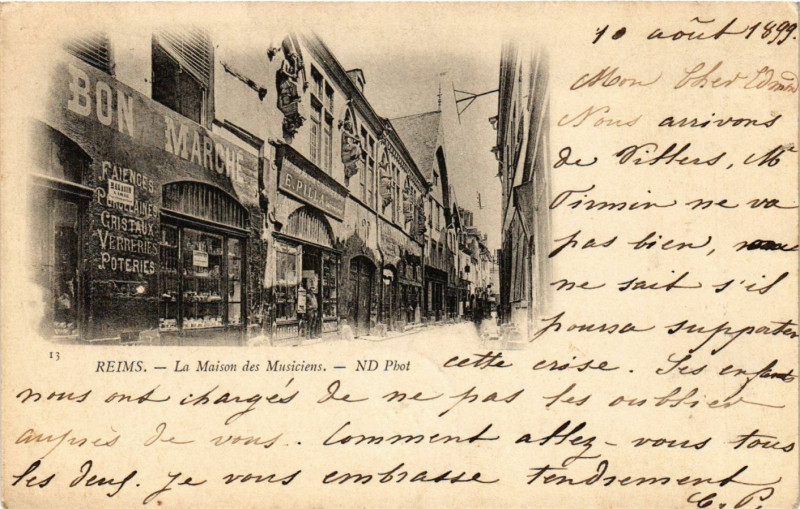 BON MARCHÉ
FAIENCES
PORCELAINES
CRISTAUX
VERRERIES
POTERIES
E. PILLA
13
REIMS. — La Maison des Musiciens. — ND Phot
10 août 1899.
Mon Cher Edmond
Nous arrivons
de Villers, M
Firmin ne va
pas bien,
ne sait s'il
pourra supporter
cette crise. Ses enfants
nous ont chargés de ne pas les oublier
auprès de vous. Comment allez-vous tous
les deux. Je vous embrasse tendrement
C. P.